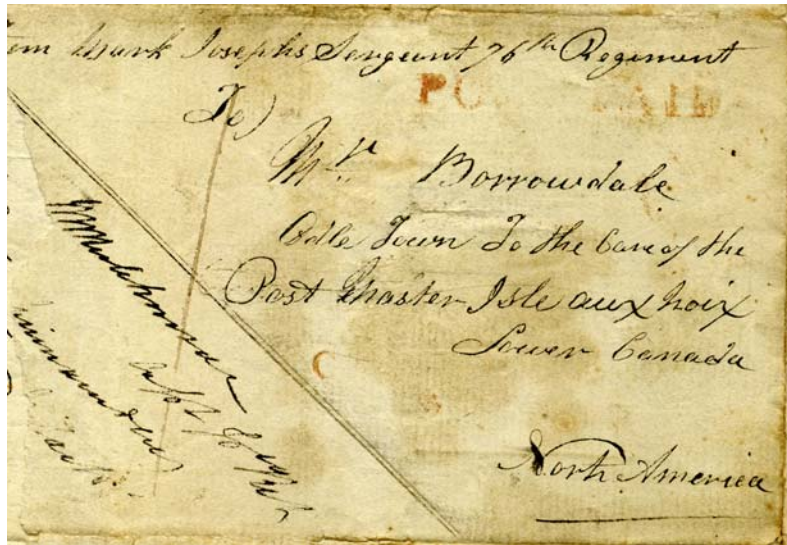 Mark Josephs Sergeant 76th Regiment
POST PAID
To)
Mr Borrowdale
Odle Town To the Care of the
Post Master Isle aux noix
Lower Canada
North America